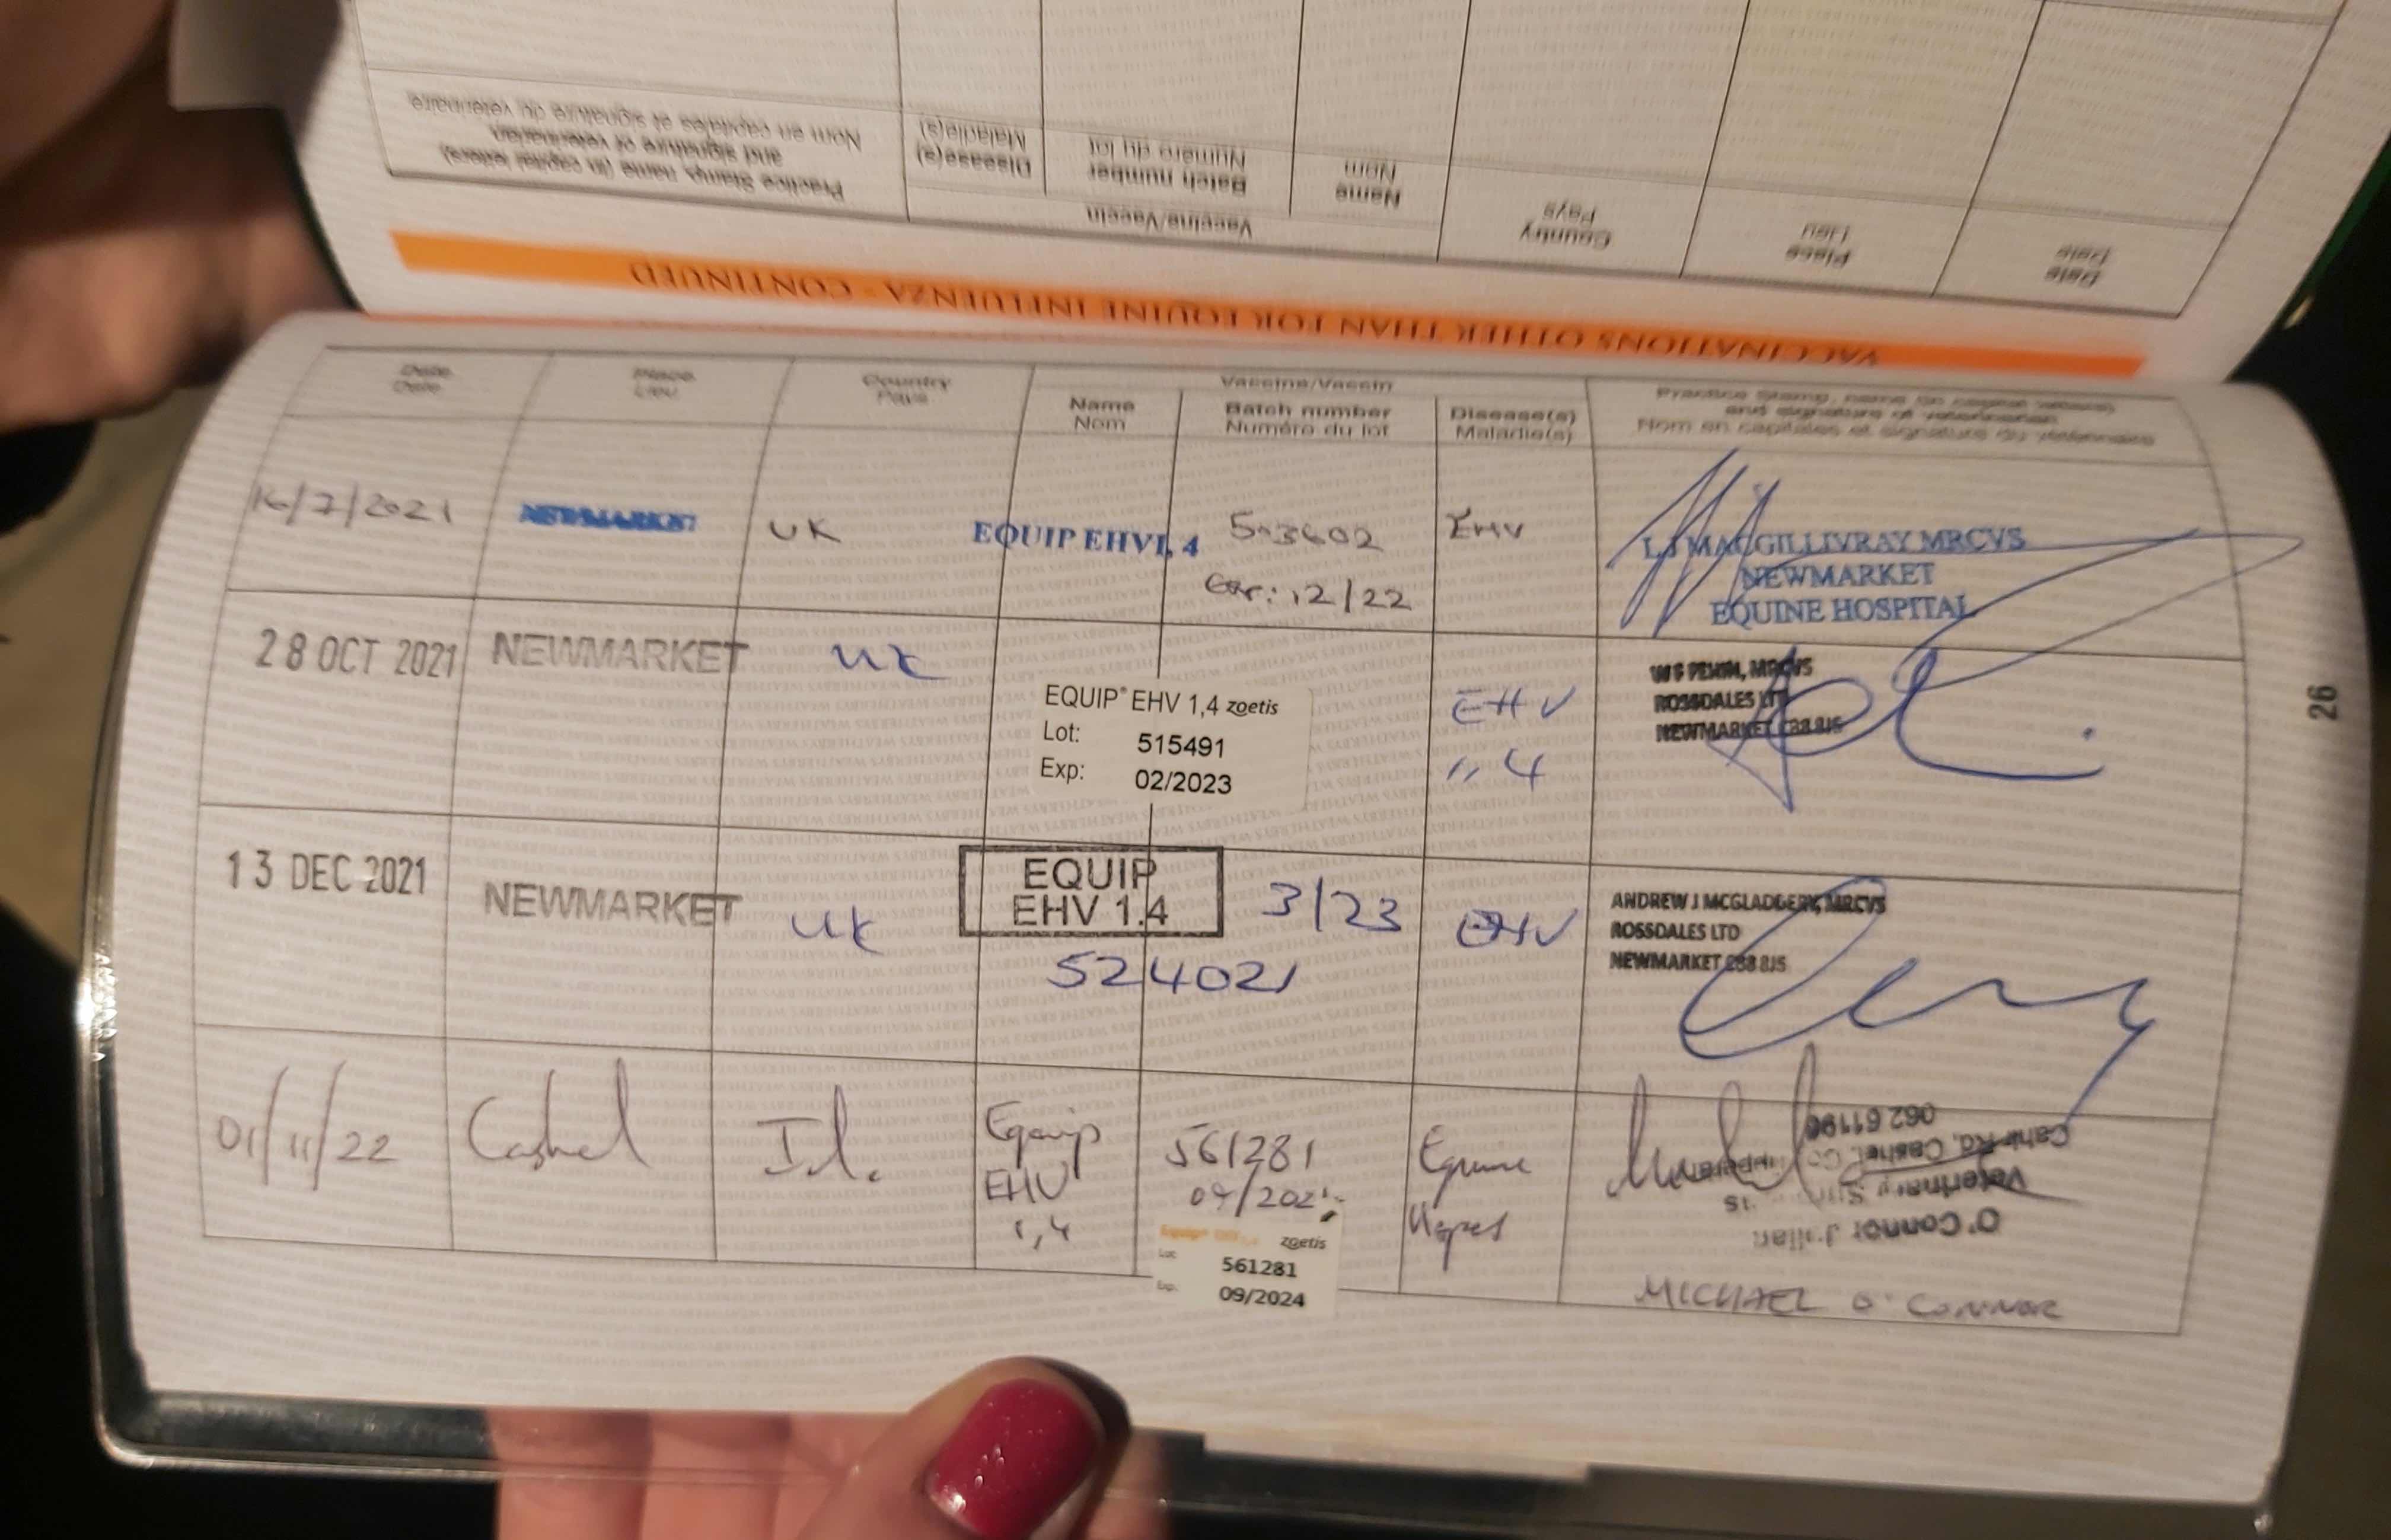 Practice Stamp, name (in capital letters)
and signature of veterinarian
Nom en capitales et signature du vétérinaire
Disease(s)
Maladie(s)
Batch number
Numéro du lot
Name
Nom
Vaccine/Vaccin
Country
Pays
Place
Lieu
Date
Date
VACCINATIONS OTHER THAN FOR EQUINE INFLUENZA - CONTINUED
Date
Date
Place
Lieu
Country
Pays
Vaccine/Vaccin
Name
Nom
Batch number
Numéro du lot
Disease(s)
Maladie(s)
Practice Stamp, name (in capital letters)
and signature of veterinarian
Nom en capitales et signature du vétérinaire
16/7/2021
NEWMARKET
UK
EQUIP EHV1, 4
503602
12/22
EHV
L J MACGILLIVRAY MRCVS
NEWMARKET
EQUINE HOSPITAL
28 OCT 2021
NEWMARKET
UK
EQUIP® EHV 1,4 zoetis
Lot: 515491
Exp: 02/2023
EHV
4
MRCVS
ROSSDALES LTD
NEWMARKET CB8 8JS
26
13 DEC 2021
NEWMARKET
UK
EQUIP
EHV 1.4
3/23
524021
EHV
ANDREW J MCGLADDERY, MRCVS
ROSSDALES LTD
NEWMARKET CB8 8JS
01/11/22
Cashel
Irl.
Equip
EHV
1,4
561281
Equip® zoetis
Lot: 561281
Exp: 09/2024
Equine
Herpes
O'Connor Julian
Veterinary
Cahir Rd, Cashel, Co
062 61190
MICHAEL O'CONNOR